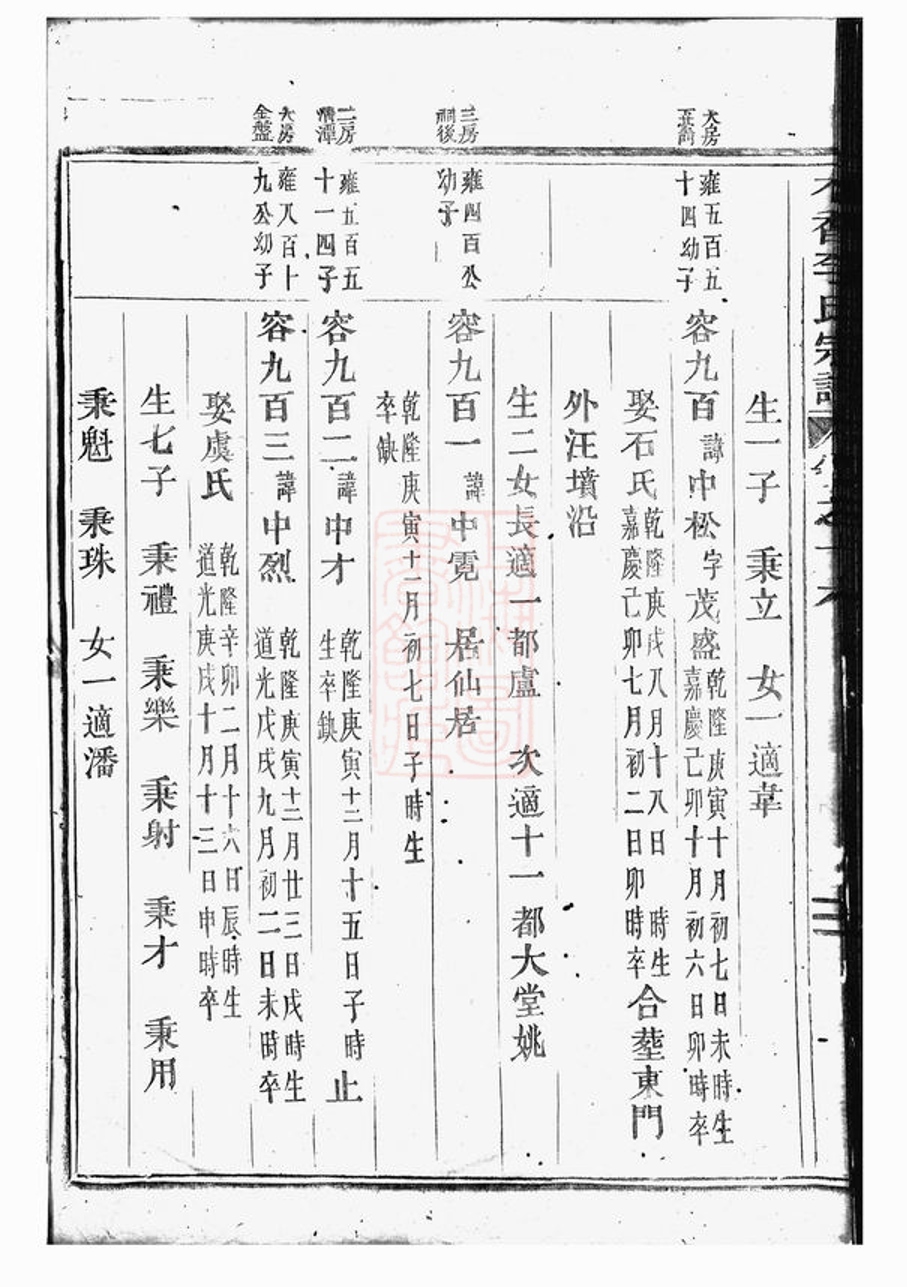 李氏宗譜
生一子 秉立 女一適韋
大房
雍五百五
十四幼子
容九百 諱中松 字茂盛
乾隆庚寅十月初七日未時生
嘉慶己卯十月初六日卯時卒
娶石氏
乾隆庚戌八月十八日 時生
嘉慶己卯七月初二日卯時卒
合塟東門
外汪墳沿
生二女長適一都盧 次適十一都大堂姚
三房
嗣後
雍四百公
幼子
容九百一 諱中霓 居仙居
乾隆庚寅十一月初七日子時生
卒缺
二房
潭
雍五百五
十一四子
容九百二 諱中才
乾隆庚寅十二月十五日子時
生卒缺
止
大房
金盤
雍八百十
九公幼子
容九百三 諱中烈
乾隆庚寅十二月廿三日戌時生
道光戊戌九月初二日未時卒
娶虞氏
乾隆辛卯二月十六日辰時生
道光庚戌十月十三日申時卒
生七子 秉禮 秉樂 秉射 秉才 秉用
秉魁 秉珠 女一適潘